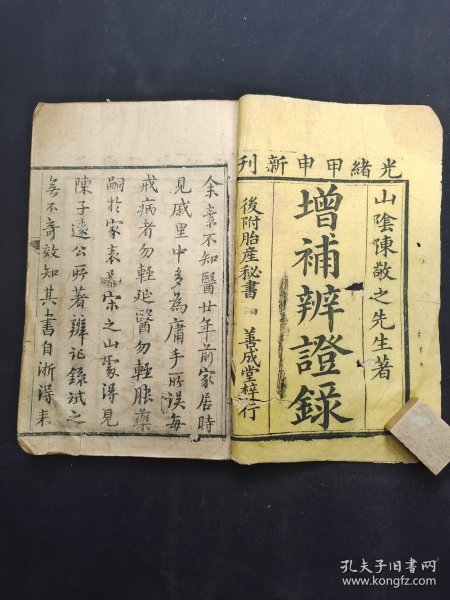 光緒甲申新刊
山陰陳敬之先生著
增補辨證錄
後附胎產秘書 善成堂梓行
余素不知醫廿年前家居時
見戚里中多為庸手所誤每
戒病者勿輕延醫勿輕服藥
嗣於家表宋之山處得見
陳子遠公所著辨証錄試之
無不奇效知其書自浙得來
孔夫子旧书网
www.kongfz.com